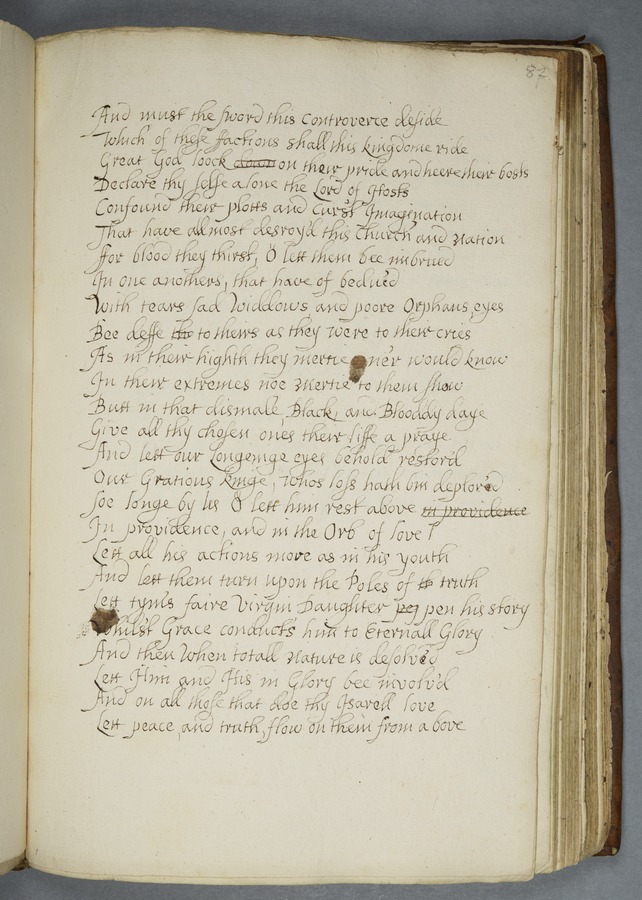 87
And must the sword this Controverce deside
Which of these factions shall this kingdome ride
Great God loock down on their pride and heere their bosts
Declare thy selfe alone the Lord of Hosts
Confound their plotts and Curs't Imagination
That have allmost desroy'd this Church and Nation
For blood they thirst, O lett them bee imbrued
In one anothers, that have of
With tears sad Widdows, and poore Orphans eyes
Bee deffe the to theirs as they were to their cries
As in their highth they mertie ner would know
In their extremes noe Mertie to them show
Butt in that dismall Black, and Blooddy daye
Give all thy chosen ones their liffe a praye
And lett our Longeinge eyes behold restord
Our Gratious kinge, whos loss hath bin deplored
soe longe by us O lett him rest above in providence
In providence, and in the Orb of love
Lett all his actions move as in his youth
And lett them turn upon the Poles of truth
Lett tym's faire Virgin Daughter pen his story
Whilst Grace conducts him to Eternall Glory
And then when totall Nature is desolv'd
Lett Him and His in Glory bee involv'd
And on all those that doe thy Isarell love
Lett peace, and truth, flow on them from above